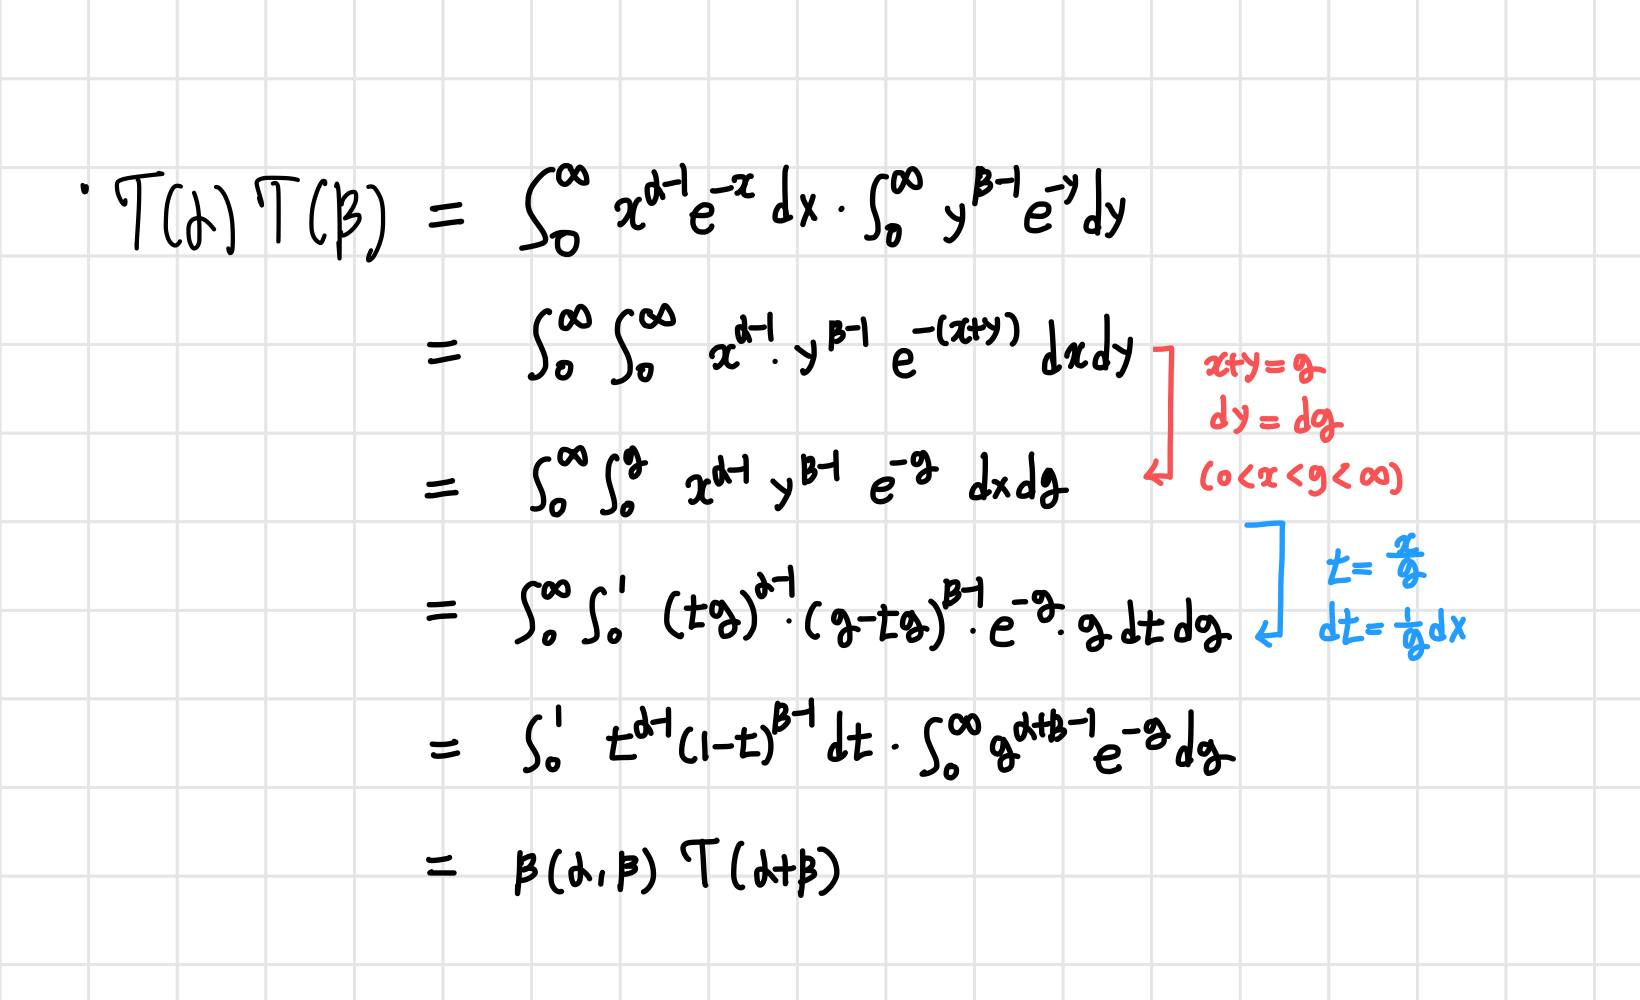 · Γ(α) Γ(β) = ∫₀^∞ x^{α-1} e^{-x} dx · ∫₀^∞ y^{β-1} e^{-y} dy
= ∫₀^∞ ∫₀^∞ x^{α-1} · y^{β-1} e^{-(x+y)} dxdy
x+y = g
dy = dg
(0 < x < g < ∞)
= ∫₀^∞ ∫₀^g x^{α-1} y^{β-1} e^{-g} dxdg
t = x/g
dt = 1/g dx
= ∫₀^∞ ∫₀^1 (tg)^{α-1} · (g-tg)^{β-1} · e^{-g} · g dt dg
= ∫₀^1 t^{α-1} (1-t)^{β-1} dt · ∫₀^∞ g^{α+β-1} e^{-g} dg
= β(α, β) Γ(α+β)